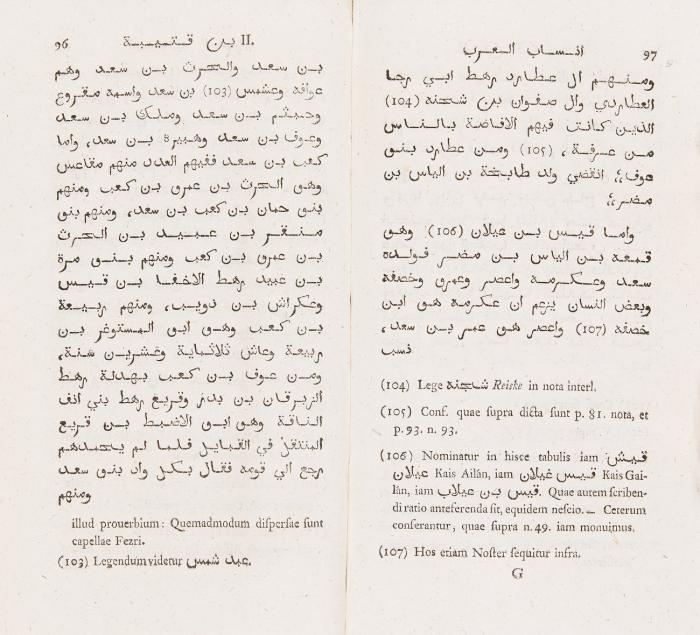 96 بن قتيبة II.
بن سعد والحرث بن سعد وهم
عوافه وعبشمس (103) بن سعد واسمه مقروع
وجشم بن سعد وملك بن سعد
وعوف بن سعد وهبيرة بن سعد، واما
كعب بن سعد ففيهم العدد منهم مقاعس
وهو الحرث بن عمرو بن كعب ومنهم
بنو حمان بن كعب بن سعد، ومنهم بنو
منقر بن عبيد بن الحرث
بن عمرو بن كعب ومنهم بنو مرة
بن عبيد رهط الاحنف بن قيس
وعكراش بن ذويب، ومنهم ربيعة
بن كعب وهو ابو المستوغر بن
ربيعة وعاش ثلاثماية وعشرين سنة،
ومن عوف بن كعب بهدلة رهط
الزبرقان بن بدر وقريع رهط بني انف
الناقة وهو ابو الاضبط بن قريع
المنتقل في القبايل فلما لم يحمدهم
رجع الي قومه فقال بكل واد بنو سعد
ومنهم
illud prouerbium: Quemadmodum dispersae sunt
capellae Fezri.
(103) Legendum videtur عبد شمس.
انساب العرب 97
ومنهم ال عطارد رهط ابي رجا
العطاردي وال صفوان بن شحنه (104)
الذين كانت فيهم الافاضة بالناس
من عرفة، (105) ومن عطارد بنو
عوف؛ انقضي ولد طابخة بن الياس بن
مضر؛
واما قيس بن عيلان (106) وهو
قمعه بن الياس بن مضر فولده
سعد وعكرمه واعصر وعمرو وخصفه
وبعض النسان يزعم ان عكرمه هو ابن
خصفه (107) واعصر هو عمر بن سعد،
نسب
(104) Lege شجنه Reiske in nota interl.
(105) Conf. quae supra dicta sunt p. 81. nota, et
p. 93. n. 93.
(106) Nominatur in hisce tabulis iam قيش
عيلان Kais Ailân, iam قيس غيلان Kais Gai-
lân, iam قيس بن عيلاب. Quae autem scriben-
di ratio anteferenda sit, equidem nescio. — Ceterum
conferantur, quae supra n. 49. iam monuimus.
(107) Hos etiam Noster sequitur infra.
G